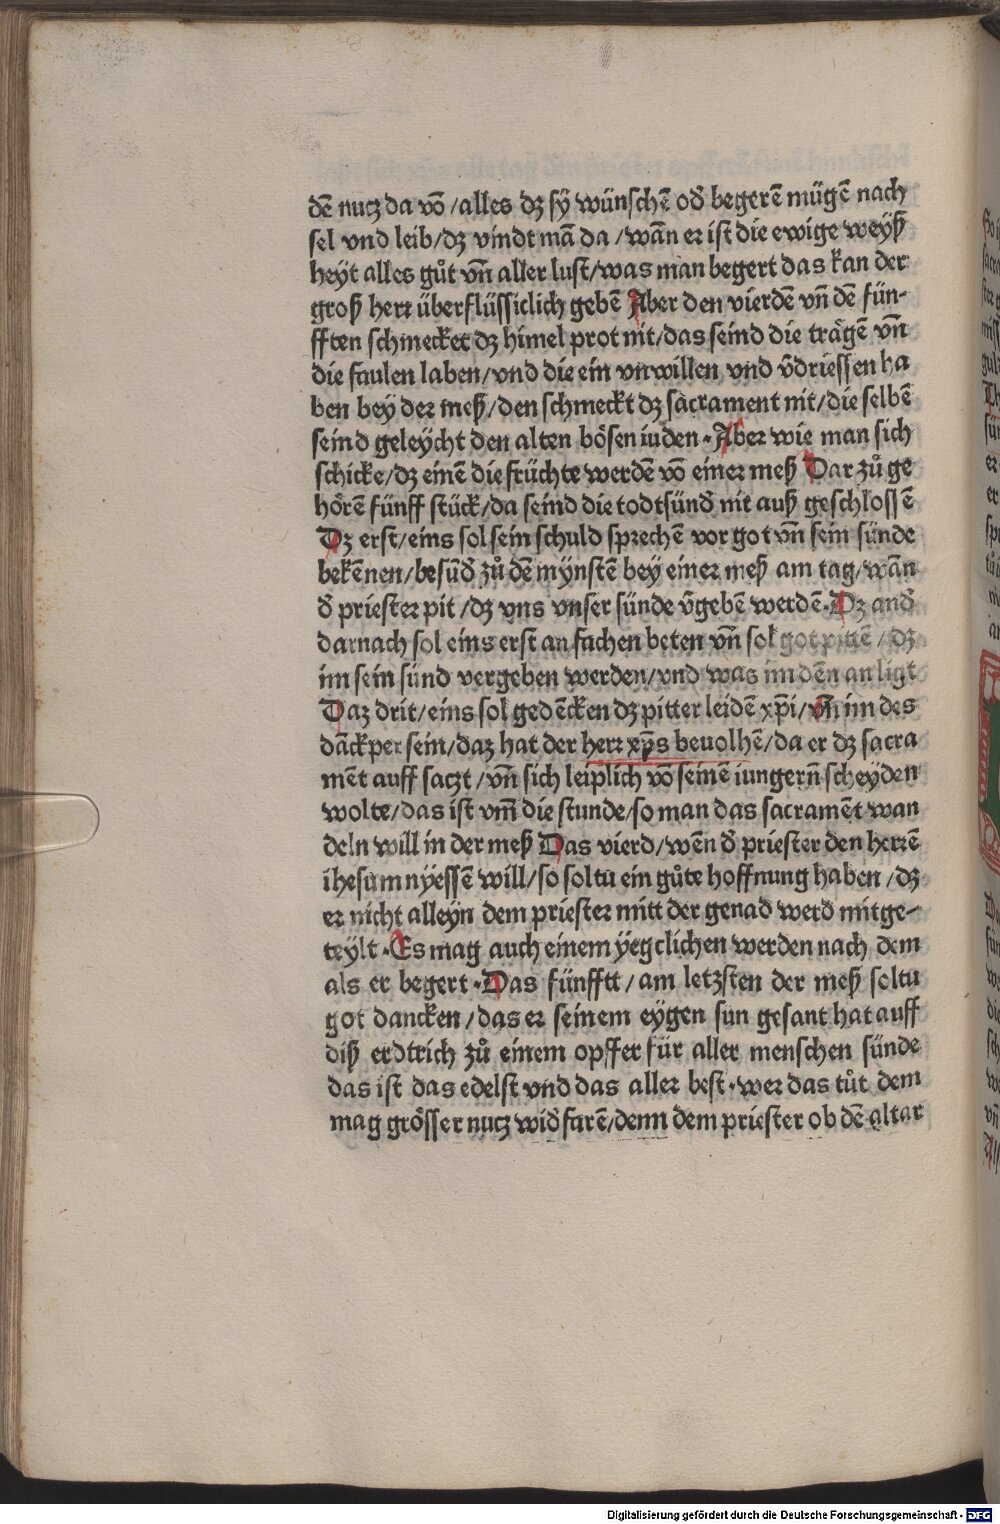 dē nucz da vō/alles dz sy wünschē od̄ begerē mügē nach
sel vnd leib/dz vindt mā da/wān er ist die ewige weyß
heyt alles gůt vn̄ aller lust/was man begert das kan der
groß herr überflüssiclich gebē Aber den vierdē vn̄ dē fün-
fften schmecket dz himel prot nit/das seind die trägē vn̄
die faulen laben/vnd die ein vnwillen vnd v̄driessen ha
ben bey der meß/den schmeckt dz sacrament nit/die selbē
seind geleycht den alten bösen iuden·Aber wie man sich
schicke/dz einē die früchte werdē vō einer meß Dar zů ge
hörē fünff stück/da seind die todtsünd̄ nit auß geschlossē
Dz erst/eins sol sein schuld sprechē vor got vn̄ sein sünde
bekēnen/besūd̄ zů dē mynstē bey einer meß am tag/wān
d̄ priester pit/dz vns vnser sünde v̄gebē werdē·Dz and̄
darnach sol eins erst an fachen beten vn̄ sol got pittē/dz
im sein sünd vergeben werden/vnd was im dēn an ligt
Daz drit/eins sol gedēcken dz pitter leidē xp̄i/vn̄ im des
dāckper sein/daz hat der herr xp̄s beuolhē/da er dz sacra
mēt auff saczt/vn̄ sich leiplich vō seinē iungern̄ scheyden
wolte/das ist vm̄ die stunde/so man das sacramēt wan
deln will in der meß Das vierd/wēn d̄ priester den herrē
ihesum nyessē will/so sol tu ein gůte hoffnung haben/dz
er nicht alleyn dem priester mitt der genad werd mitge-
teylt·Es mag auch einem yegclichen werden nach dem
als er begert·Das fünfftt/am letzsten der meß soltu
got dancken/das er seinem eygen sun gesant hat auff
diß erdtrich zů einem opffer für aller menschen sünde
das ist das edelst vnd das aller best·wer das tůt dem
mag grösser nucz wid̄farē/denn dem priester ob dē altar
Digitalisierung gefördert durch die Deutsche Forschungsgemeinschaft - DFG